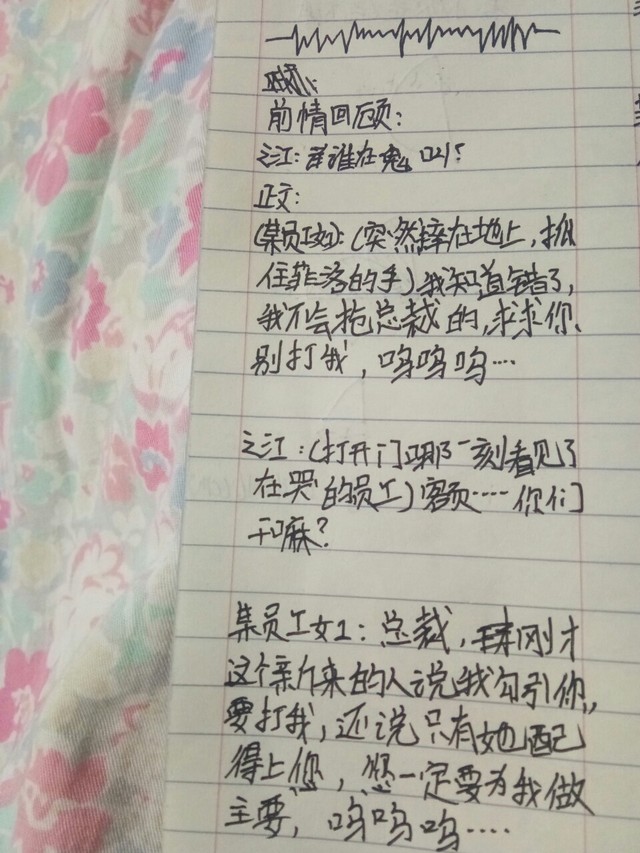 前情回顾:
之江:谁在鬼叫?
正文:
(某员工女1):(突然摔在地上,抓
住菲洛的手)我知道错了,
我不会抢总裁的,求求你、
别打我,呜呜呜····
之江:(打开门那一刻看见了
在哭的员工)客页····你们
干嘛?
某员工女1:总裁,刚才
这个新来的人说我勾引你,
要打我,还说只有她配
得上您,您一定要为我做
主要,呜呜呜····